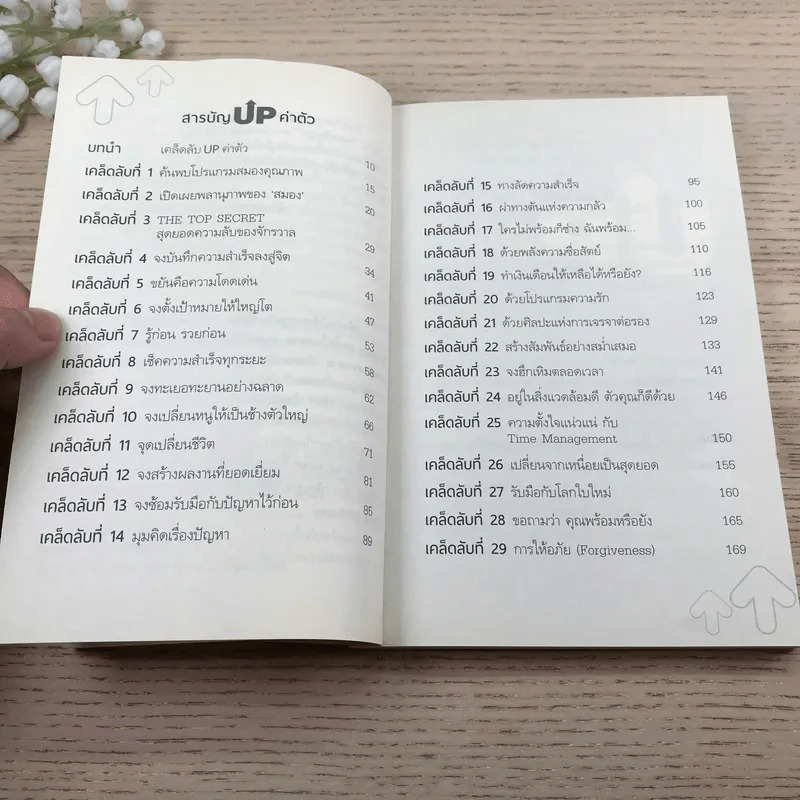 สารบัญ UP ค่าตัว
บทนำ เคล็ดลับ UP ค่าตัว
เคล็ดลับที่ 1 ค้นพบโปรแกรมสมองคุณภาพ 10
เคล็ดลับที่ 2 เปิดเผยพลานุภาพของ 'สมอง' 15
เคล็ดลับที่ 3 THE TOP SECRET 20
สุดยอดความลับของจักรวาล
เคล็ดลับที่ 4 จงบันทึกความสำเร็จลงสู่จิต 29
เคล็ดลับที่ 5 ขยันคือความโดดเด่น 34
เคล็ดลับที่ 6 จงตั้งเป้าหมายให้ใหญ่โต 41
เคล็ดลับที่ 7 รู้ก่อน รวยก่อน 47
เคล็ดลับที่ 8 เช็คความสำเร็จทุกระยะ 53
เคล็ดลับที่ 9 จงทะเยอทะยานอย่างฉลาด 58
เคล็ดลับที่ 10 จงเปลี่ยนหนูให้เป็นช้างตัวใหญ่ 62
เคล็ดลับที่ 11 จุดเปลี่ยนชีวิต 66
เคล็ดลับที่ 12 จงสร้างผลงานที่ยอดเยี่ยม 71
เคล็ดลับที่ 13 จงซ้อมรับมือกับปัญหาไว้ก่อน 81
เคล็ดลับที่ 14 มุมคิดเรื่องปัญหา 85
89
เคล็ดลับที่ 15 ทางลัดความสำเร็จ 95
เคล็ดลับที่ 16 ผ่าทางตันแห่งความกลัว 100
เคล็ดลับที่ 17 ใครไม่พร้อมก็ช่าง ฉันพร้อม... 105
เคล็ดลับที่ 18 ด้วยพลังความซื่อสัตย์ 110
เคล็ดลับที่ 19 ทำเงินเดือนให้เหลือได้หรือยัง? 116
เคล็ดลับที่ 20 ด้วยโปรแกรมความรัก 123
เคล็ดลับที่ 21 ด้วยศิลปะแห่งการเจรจาต่อรอง 129
เคล็ดลับที่ 22 สร้างสัมพันธ์อย่างสม่ำเสมอ 133
เคล็ดลับที่ 23 จงฮึกเหิมตลอดเวลา 141
เคล็ดลับที่ 24 อยู่ในสิ่งแวดล้อมดี ตัวคุณก็ดีด้วย 146
เคล็ดลับที่ 25 ความตั้งใจแน่วแน่ กับ
Time Management 150
เคล็ดลับที่ 26 เปลี่ยนจากเหนื่อยเป็นสุดยอด 155
เคล็ดลับที่ 27 รับมือกับโลกใบใหม่ 160
เคล็ดลับที่ 28 ขอถามว่า คุณพร้อมหรือยัง 165
เคล็ดลับที่ 29 การให้อภัย (Forgiveness) 169